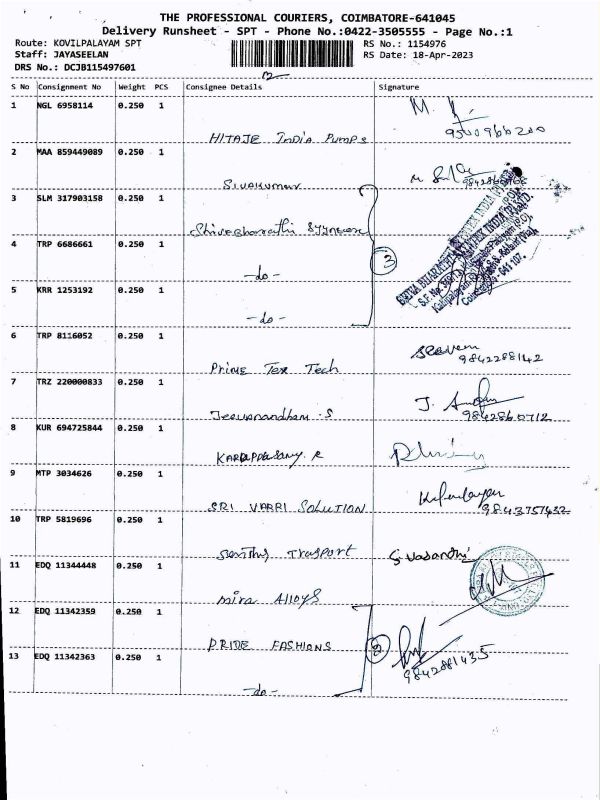 THE PROFESSIONAL COURIERS, COIMBATORE-641045
Delivery Runsheet - SPT - Phone No.:0422-3505555 - Page No.:1
Route: KOVILPALAYAM SPT RS No.: 1154976
Staff: JAYASEELAN RS Date: 18-Apr-2023
DRS No.: DCJB115497601
S No Consignment No Weight PCS Consignee Details Signature
1 NGL 6958114 0.250 1
HITAJE INDIA PUMPS
2 MAA 859449089 0.250 1
SIVAKUMAR
3 SLM 317903158 0.250 1
Shivabharathi
4 TRP 6686661 0.250 1
-do- 3
5 KRR 1253192 0.250 1
-do-
6 TRP 8116052 0.250 1
Prime Tex Tech 9842288142
7 TRZ 220000833 0.250 1
Jeevanandham.S
8 KUR 694725844 0.250 1
9 MTP 3034626 0.250 1
SRI VARRI SOLUTION
10 TRP 5819696 0.250 1
TRASPORT S. Vasanthi
11 EDQ 11344448 0.250 1
mira Alloys
12 EDQ 11342359 0.250 1
PRIDE FASHIONS 2
13 EDQ 11342363 0.250 1
-do- 9842881435